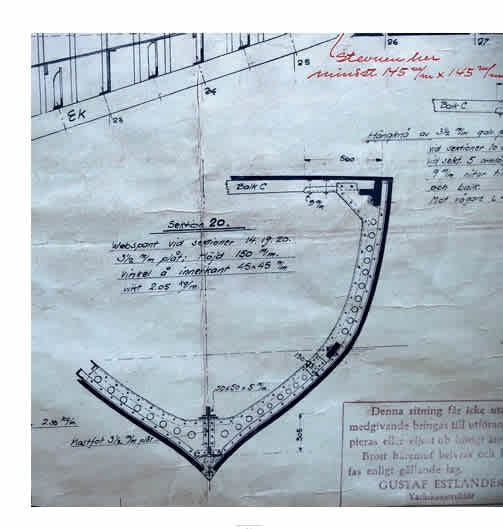 Stevnen her
minst 145 m/m x 145 m/m
26
25
24
23
EK
Balk C
Hängknä av 3½ m/m
vid sektioner
vid sekt. 5
9 m/m nitar
och balk.
560
Balk C
9 m/m
Sektion 20.
Webspant vid sektioner 14.19.20.
3½ m/m plåt; Höjd 150 m/m.
Vinkel å innerkant 45x45 m/m
vikt 2.05 kg/m
150
50x50x5 m/m
305
2.36 kg/m
Mastfot 3½ m/m plåt
Denna ritning får icke
medgivande bringas till utföran
pieras eller eljest
Brott häremot beivras och
fas enligt gällande lag.
GUSTAF ESTLANDER
Yachtkonstruktör